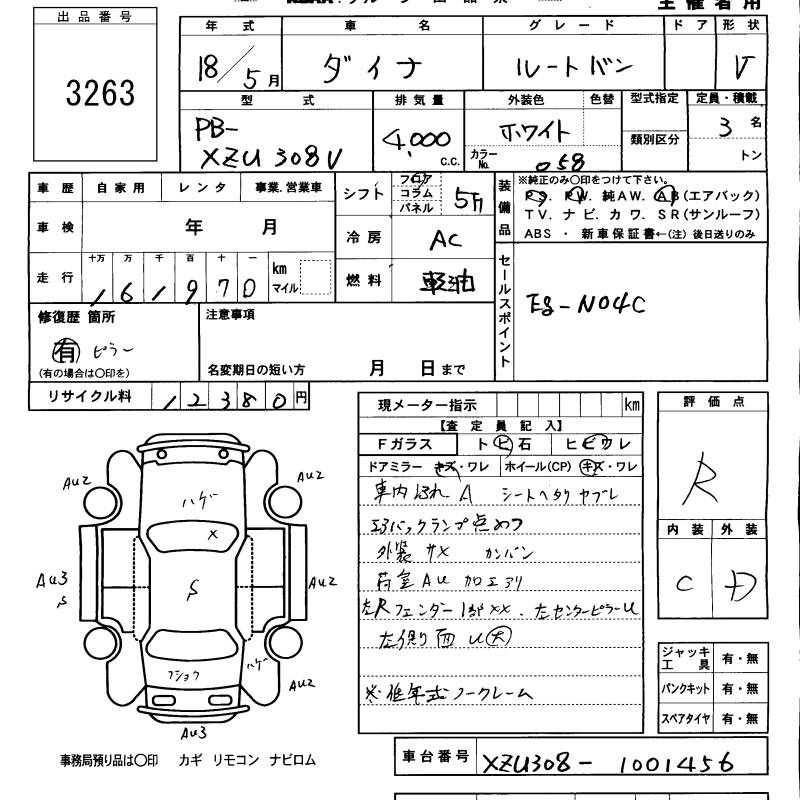 出品番号
3263
主催者用
年式 車名 グレード ドア 形状
18/5月 ダイナ ルートバン V
型式 排気量 外装色 色替 型式指定 定員・積載
PB-
XZU308V
4,000 c.c.
ホワイト
カラーNo. 058
類別区分
3名
トン
車歴 自家用 レンタ 事業.営業車
車検 年 月
走行 十万 万 千 百 十 一
161970 km マイル
シフト フロア コラム パネル 5F
冷房 AC
燃料 軽油
装備品
※純正のみ○印をつけて下さい。
PS. PW. 純AW. AB(エアバック)
TV. ナビ. カワ. SR(サンルーフ)
ABS ・ 新車保証書←(注) 後日送りのみ
セールスポイント
ES-N04C
修復歴 箇所
有 ピラー
(有の場合は○印を)
注意事項
名変期日の短い方 月 日まで
リサイクル料 12380円
現メーター指示 km
【査定員記入】
Fガラス ト ヒ 石 ヒビワレ
ドアミラー キズ・ワレ ホイール(CP) キズ・ワレ
車内 A シートヘタリ ヤブレ
バックランプ点めつ
外装 サメ カンバン
荷室AU 加工アリ
左Rフェンダー1部XX. 左センターピラーU
左側面 U大
※低年式ノークレーム
評価点
R
内装 外装
C D
ジャッキ工具 有・無
パンクキット 有・無
スペアタイヤ 有・無
AU2 AU2
ハゲ
X
AU3 S S AU2
フショク ハゲ
AU2
AU3
事務局預り品は○印 カギ リモコン ナビロム
車台番号 XZU308-1001456